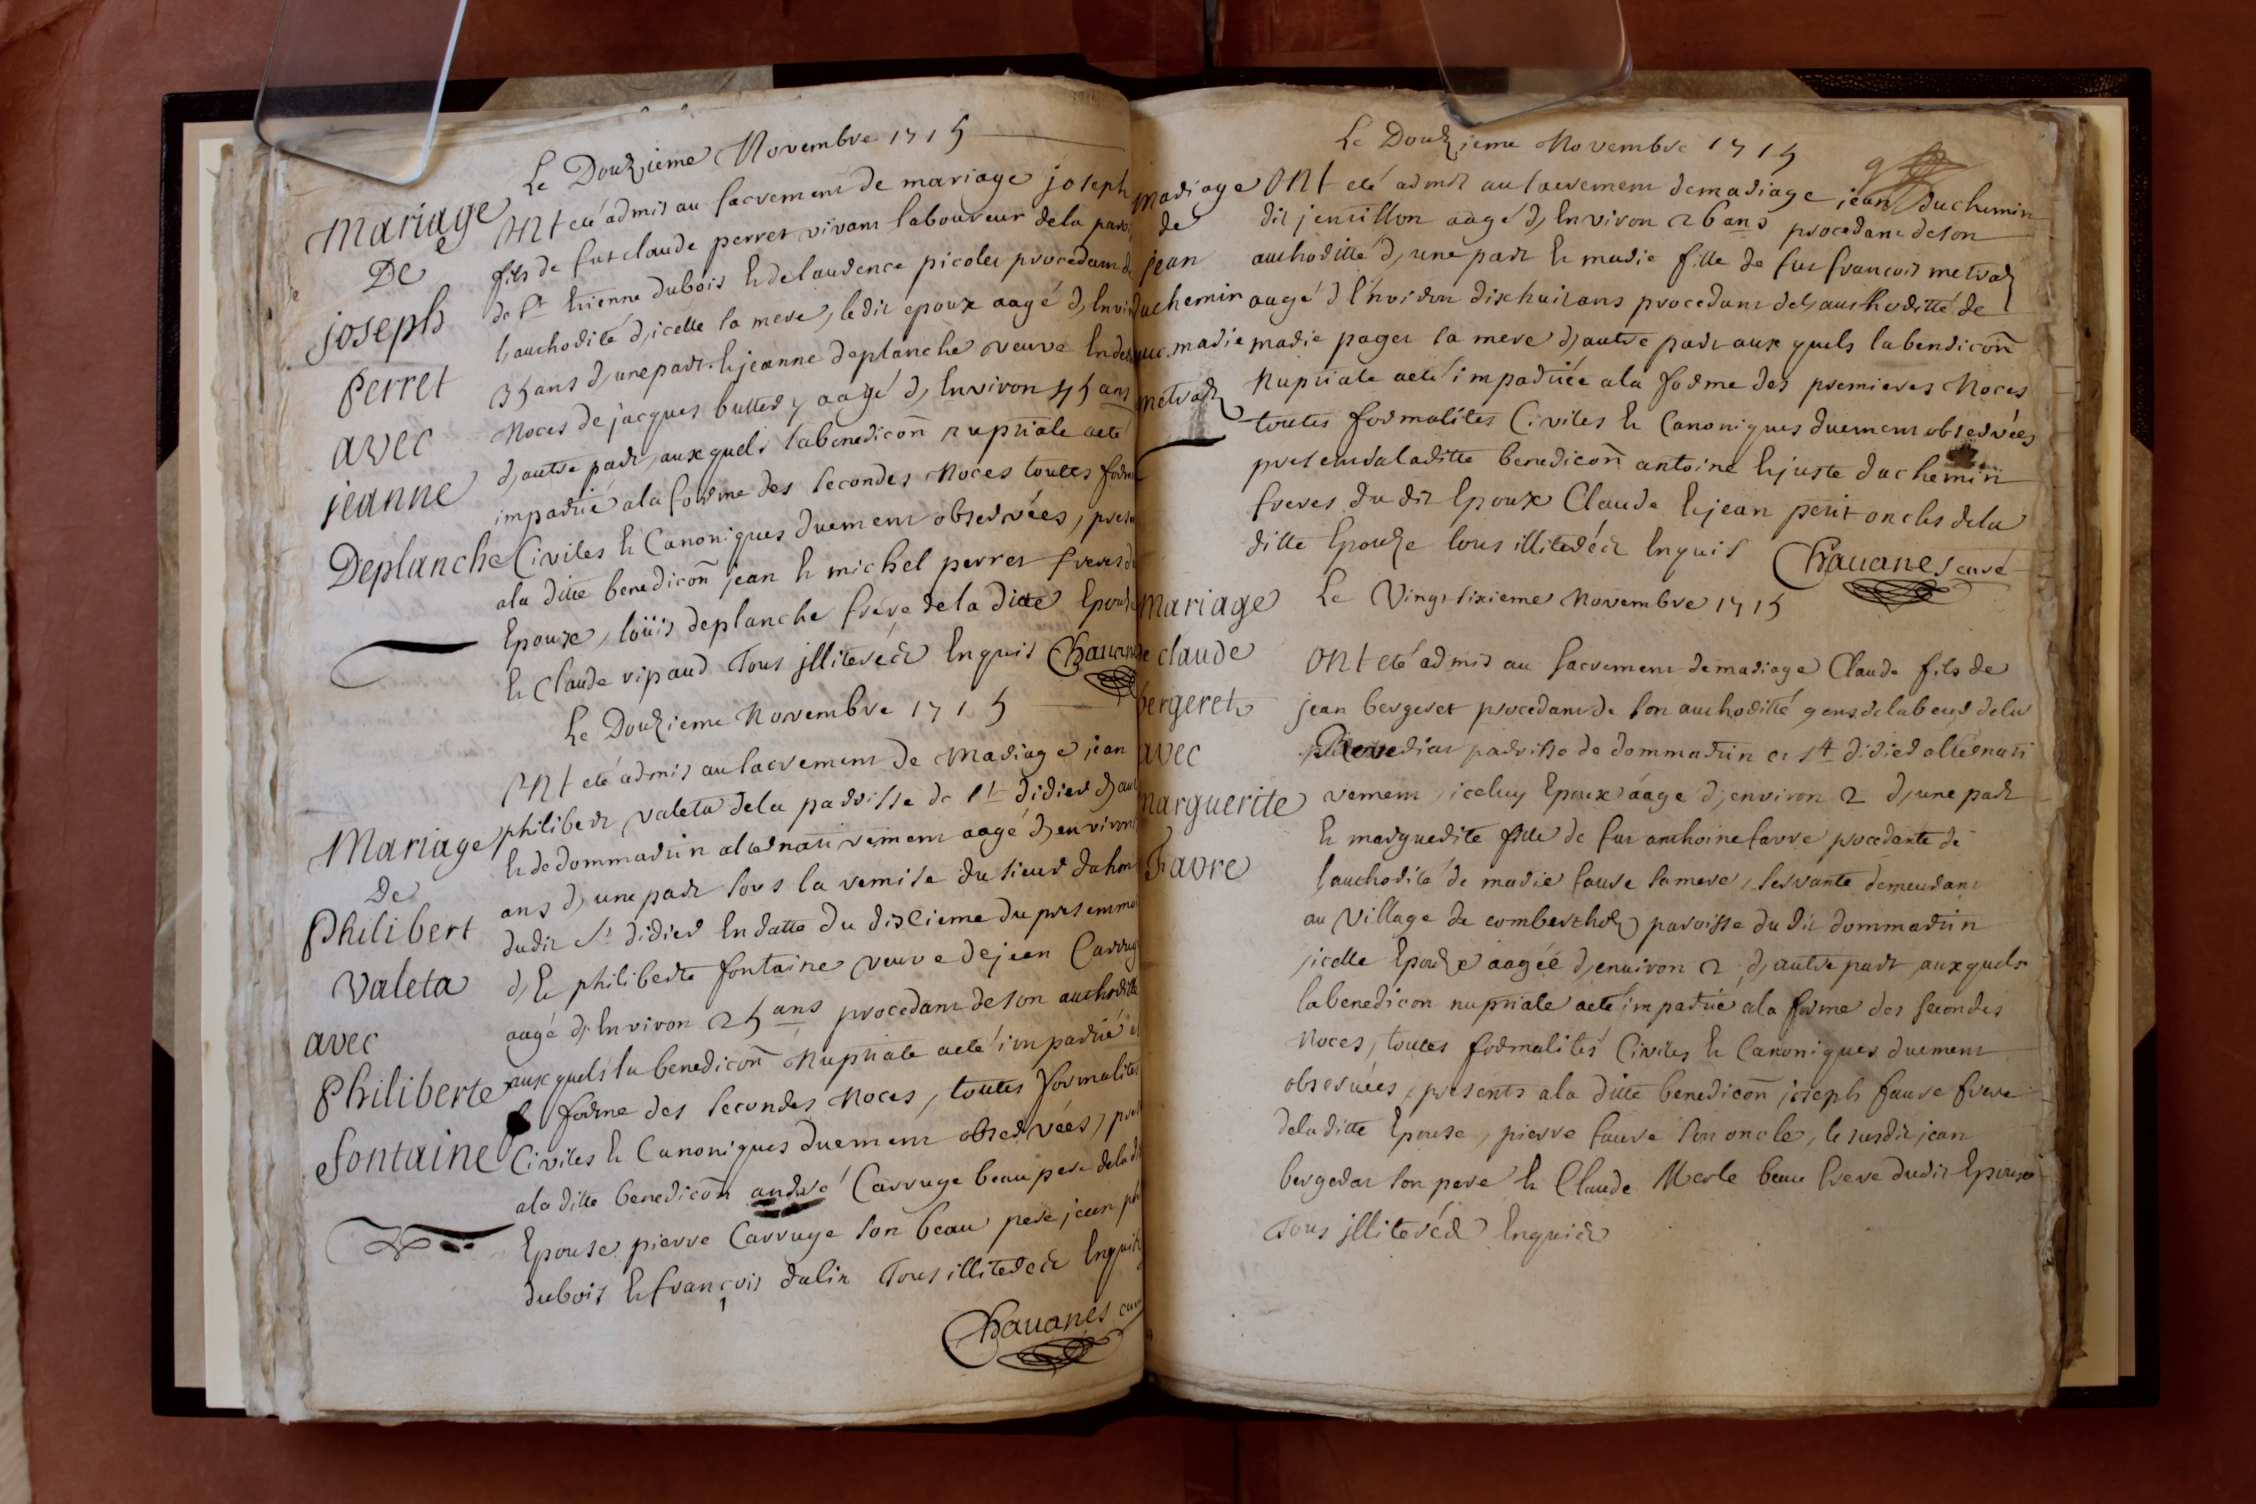 Le Douzieme Novembre 1715
Mariage
De
joseph
Perret
avec
jeanne
Deplanche
Ont eté admis au sacrement de mariage joseph
fils de fut claude perret vivant laboureur dela paroi
de st Etienne dubois & de laudence picolet procedant de
l,authorité d,icelle sa mere, le dit epoux aagé d, Envir
35 ans d, une part. & jeanne deplanche veuve En de
Noces de jacques butter y aagé d, Environ 45 ans
d,autre part, aux quels la benediçon nuptiale aeté
impartie a la forme des secondes Noces toutes form
Civiles & Canoniques duement observées, prese
ala ditte benediçon jean & michel perret freres d
Epoux, loüis deplanche frere de la ditte Epouze
& Claude ripaud Tous jlliterés Enquis Chauan
Le Douzieme Novembre 1715
Mariage
De
Philibert
Valeta
avec
Philiberte
fontaine
Ont eté admis au sacrement de Mariage jean
philibert valeta dela paroisse de st didier d, au
& de dommartin alternativement aagé d, environ
ans d, une part sous la remise du sieur dahon
dudit st didier En datte du dixieme du present mo
d, & philiberte fontaine veuve de jean Carrug
aagé d, Environ 25 ans procedant de son authoritté
aux quels la benediçon Nuptiale aeté impartie a
la forme des secondes Noces, toutes formalites
Civiles & Canoniques duement observées, pres
ala ditte benediçon andre Carruge beau pere dela d
Epouse pierre Carruge son beau pere jean ph
dubois & françois dulin Tous illiterés Enquis
Chauanes curé
Le Douzieme Novembre 1715
Mariage
de
jean
duchemin
avec marie
metraz
Ont eté admis au sacrement de mariage jean duchemin
dit jentillon aagé d, Environ 26 ans procedant de son
authoritté d, une part & marie fille de fut françois metraz
aagé d Environ dixhuit ans procedant del, authoritté de
marie paget sa mere d, autre part aux quels la bendiçon
Nuptiale aeté impartiée a la forme des premieres Noces
toutes formalites Civiles & Canoniques duement observées
present a laditte benediçon antoine & juste duchemin
freres du dit Epoux Claude & jean petit oncles dela
ditte Epouze tous illiterés Enquis Chauanes curé
Le Vingt sixieme Novembre 1715
Mariage
de claude
bergeret
avec
marguerite
Favre
Ont eté admis au sacrement de mariage Claude fils de
jean bergeret procedant de son authoritté gens de labeur dela
paroisse de dommartin et st didier alternati
vement, iceluy Epoux aage d, environ 2 d, une part
& marguerite fille de fut anthoine favre procedante de
l,authorité de marie favre sa mere, servante demeurant
au Village de comberthoz paroisse du dit dommartin
jcelle Epouze aagée d, environ 2 d, autre part, aux quels
la benediçon nuptiale aeté impartie a la forme des secondes
Noces, toutes formalités Civiles & Canoniques duement
observées, presents a la ditte benediçon joseph favre frere
dela ditte Epouse, pierre favre son oncle, le susdit jean
bergeret son pere & Claude Merle beau frere dudit Epoux
Tous jlliterés Enquis